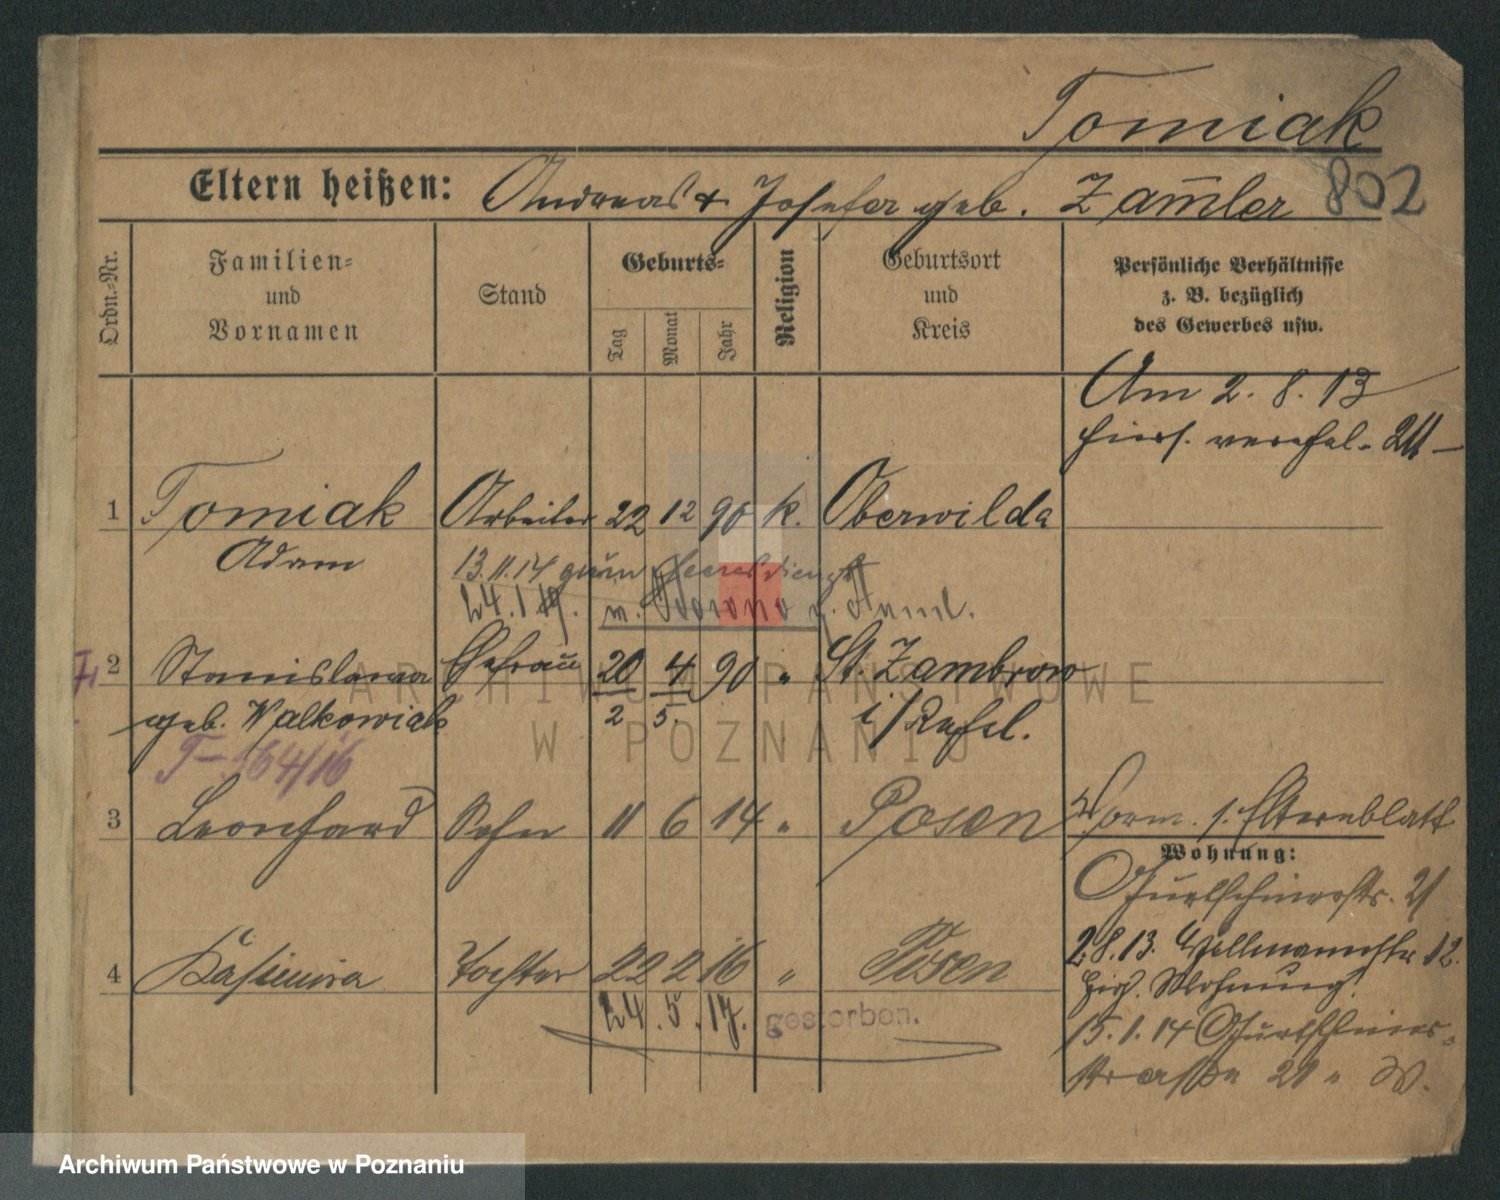 Tomiak
Eltern heißen: Andreas & Josefa geb. Zam̅ler 802
Ordn.-Nr.
Familien-
und
Vornamen
Stand
Geburts-
Tag
Monat
Jahr
Religion
Geburtsort
und
Kreis
Persönliche Verhältnisse
z. B. bezüglich
des Gewerbes usw.
Am 2. 8. 13
hiers. verehel.
1 Tomiak Arbeiter 22 12 90 k. Oberwilda
Adam
13.11.14 zum Heeresdienst
24.1.19. m.
2 Stanislawa Ehefrau 20 4 90 " St. Zambrowo
geb. Walkowiak 2 5. i/
T 164/16
3 Leonhard Sohn 11 6 14 " Posen
Vorm. s. Elternblatt
Wohnung:
Gurtschinerstr. 21
4 Kasimira Tochter 22 2 16 " Posen
2.8.13. Wellmannstr 12.
bish. Wohnung.
24.5.17. gestorben.
15.1.14 Gurtschiner-
strasse 21 " W.
ARCHIWUM PAŃSTWOWE
W POZNANIU
Archiwum Państwowe w Poznaniu